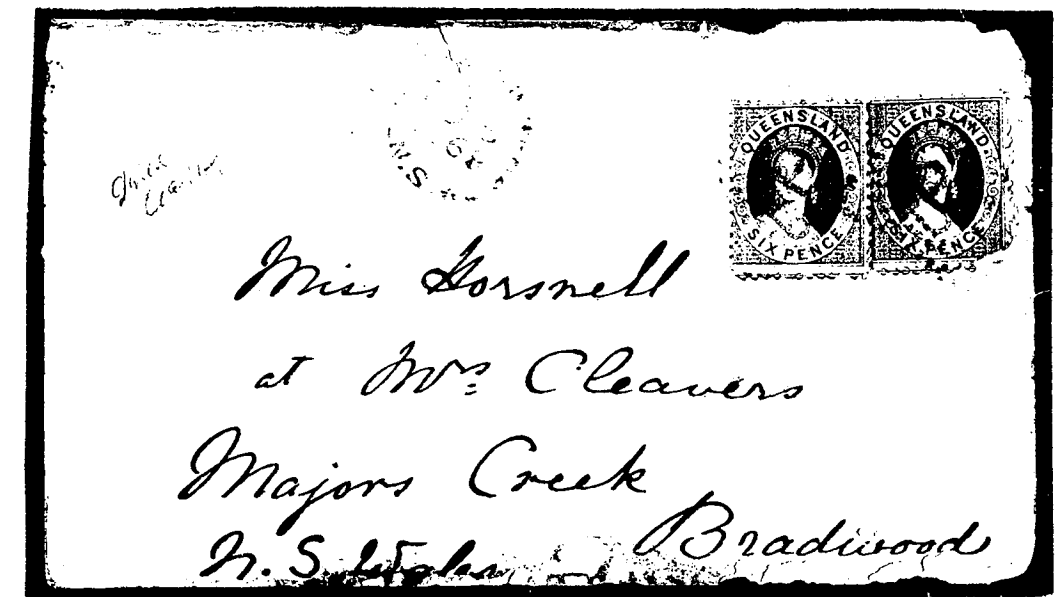 QUEENSLAND
SIX PENCE
QUEENSLAND
SIX PENCE
N.S
Miss Horsnell
at Mrs Cleavers
Majors Creek
Bradwood
N. S. Wales